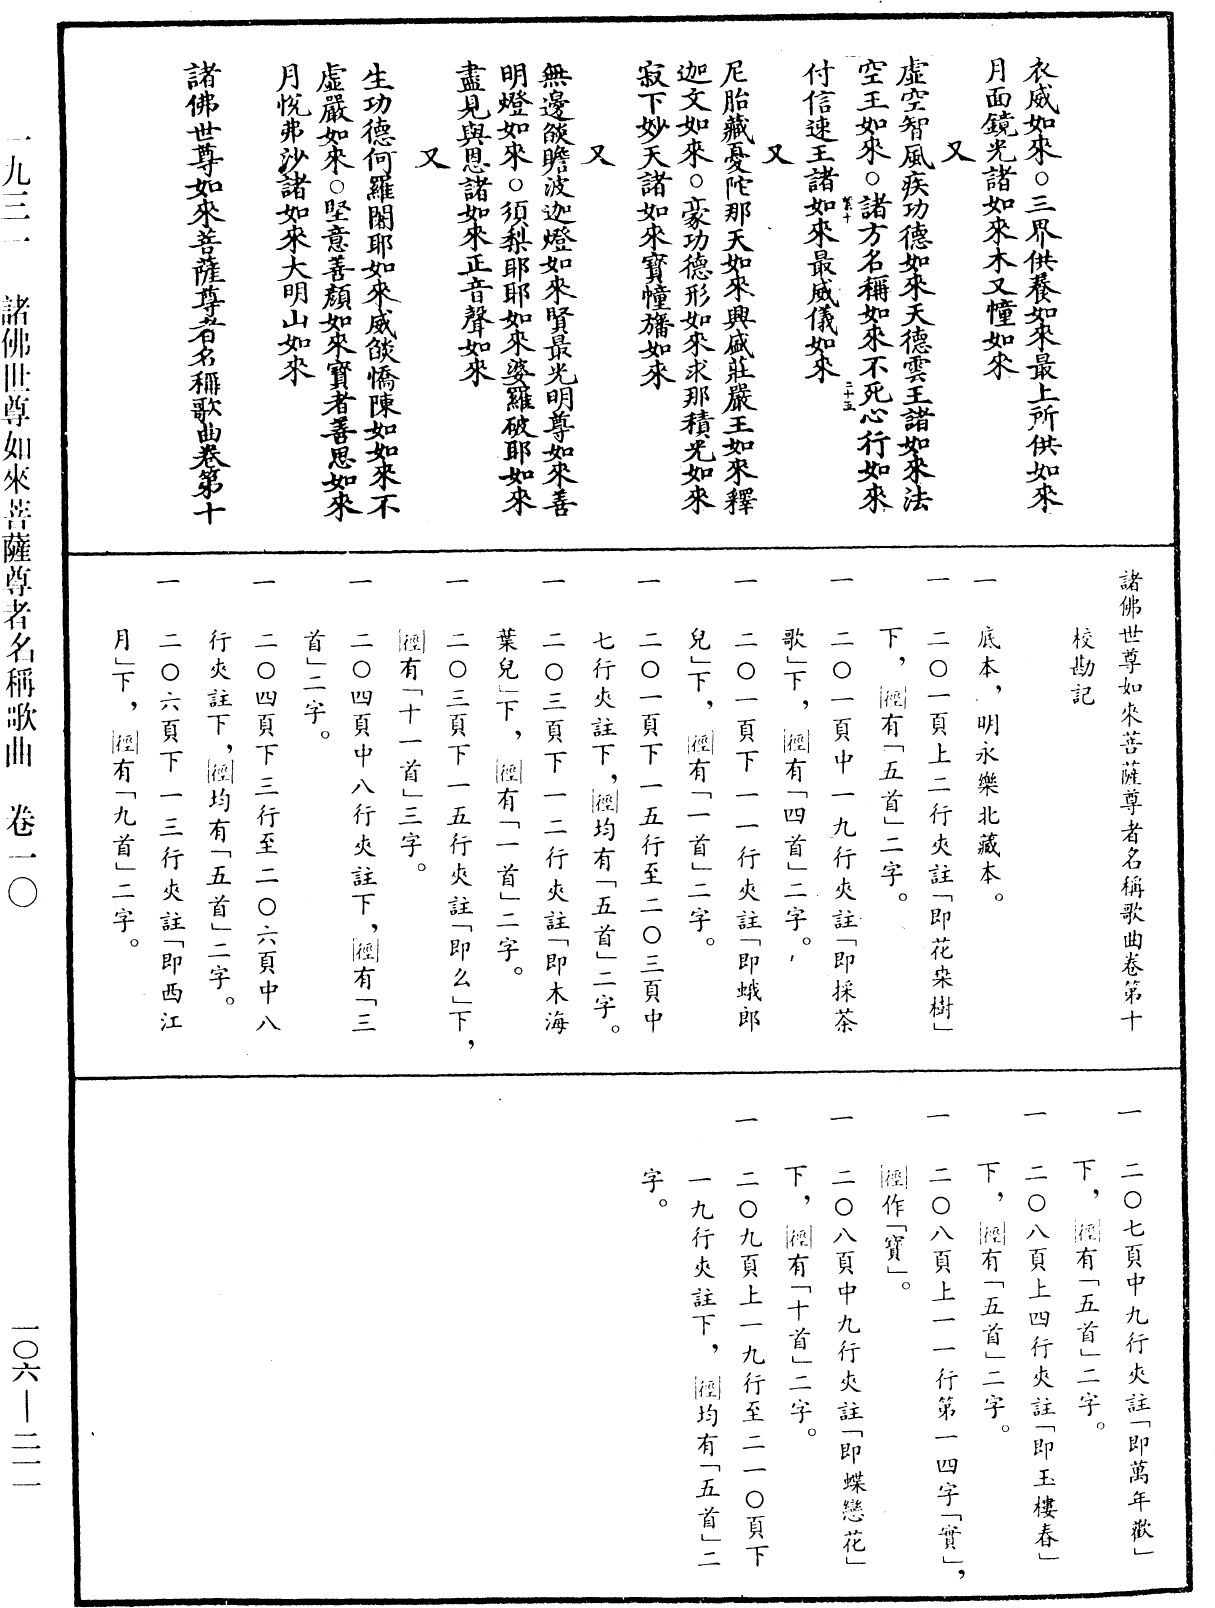 衣威如來○三界供養如來最上所供如來
月面鏡光諸如來木叉幢如來
又
虛空智風疾功德如來天德雲王諸如來法
空王如來○諸方名稱如來不死心行如來
付信速王諸如來最威儀如來
又
尼胎藏憂陀那天如來興盛莊嚴王如來釋
迦文如來○豪功德形如來求那積光如來
寂下妙天諸如來寶幢旛如來
又
無邊燄瞻波迦燈如來賢最光明尊如來善
明燈如來○須梨耶耶如來婆羅破耶如來
盡見與恩諸如來正音聲如來
又
生功德何羅闍耶如來威燄憍陳如如來不
虛嚴如來○堅意善顏如來寶者善思如來
月悅弗沙諸如來大明山如來
諸佛世尊如來菩薩尊者名稱歌曲卷第十
諸佛世尊如來菩薩尊者名稱歌曲卷第十
校勘記
一　底本，明永樂北藏本。
一　二〇一頁上二行夾註「即花染樹」
下，徑有「五首」二字。
一　二〇一頁中一九行夾註「即採茶
歌」下，徑有「四首」二字。
一　二〇一頁下一一行夾註「即蛾郎
兒」下，徑有「一首」二字。
一　二〇一頁下一五行至二〇三頁中
七行夾註下，徑均有「五首」二字。
一　二〇三頁下一二行夾註「即木海
葉兒」下，徑有「一首」二字。
一　二〇三頁下一五行夾註「即么」下，
徑有「十一首」三字。
一　二〇四頁中八行夾註下，徑有「三
首」二字。
一　二〇四頁下三行至二〇六頁中八
行夾註下，徑均有「五首」二字。
一　二〇六頁下一三行夾註「即西江
月」下，徑有「九首」二字。
一　二〇七頁中九行夾註「即萬年歡」
下，徑有「五首」二字。
一　二〇八頁上四行夾註「即玉樓春」
下，徑有「五首」二字。
一　二〇八頁上一一行第一四字「實」，
徑作「寶」。
一　二〇八頁中九行夾註「即蝶戀花」
下，徑有「十首」二字。
一　二〇九頁上一九行至二一〇頁下
一九行夾註下，徑均有「五首」二
字。
一九三一　諸佛世尊如來菩薩尊者名稱歌曲　卷一〇
一〇六—二一一